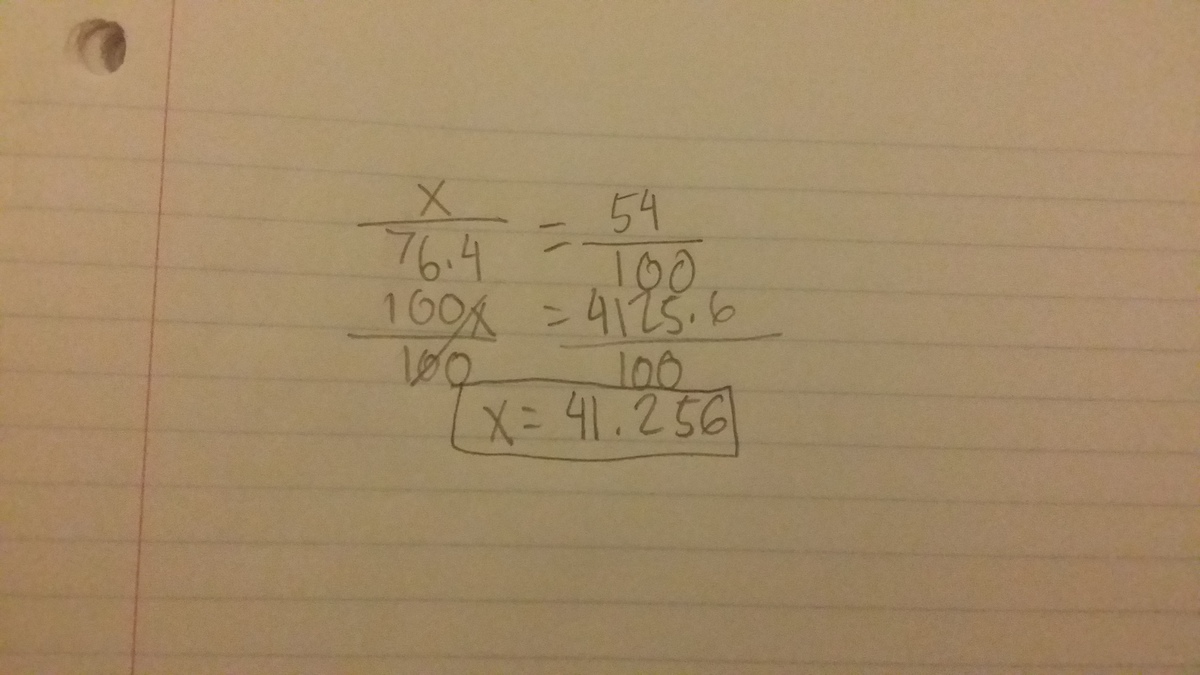 x/76.4 = 54/100
100x/100 = 4125.6/100
x = 41.256